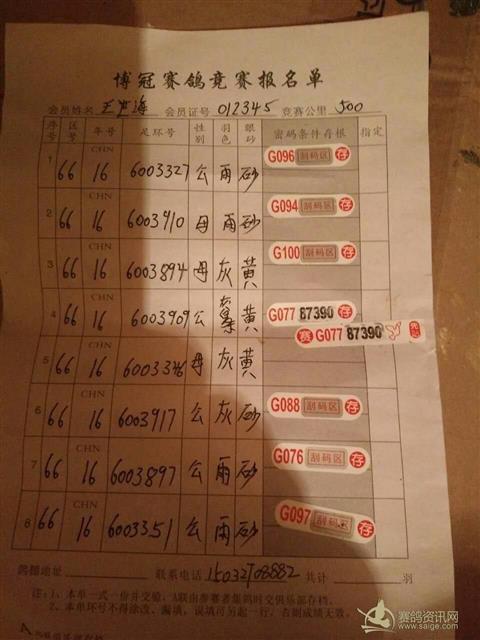 博冠赛鸽竞赛报名单
会员姓名 王 海 会员证号 012345 竞赛公里 500
序号 区号 年号 足环号 性别 羽色 眼砂 密码条件存根 指定
1 66 CHN 16 6003327 公 雨 砂 G096 刮码区 存
2 66 CHN 16 6003910 母 雨 砂 G094 刮码区 存
3 66 CHN 16 6003894 母 灰 黄 G100 刮码区 存
4 66 CHN 16 6003909 公 黄 G077 87390 存
赛 G077 87390
5 66 CHN 16 6003346 母 灰 黄
6 66 CHN 16 6003917 公 灰 砂 G088 刮码区 存
7 66 CHN 16 6003897 公 雨 砂 G076 刮码区 存
8 66 CHN 16 6003351 公 雨 砂 G097 刮码区 存
鸽棚地址 联系电话 15032708882 共计 羽
注:1、本单一式一份并交验,A联由参赛者集鸽时交俱乐部存档。
2、本单环号不得涂改、漏填,误填可另起一行,否则成绩无效。
赛鸽资讯网
www.saige.com